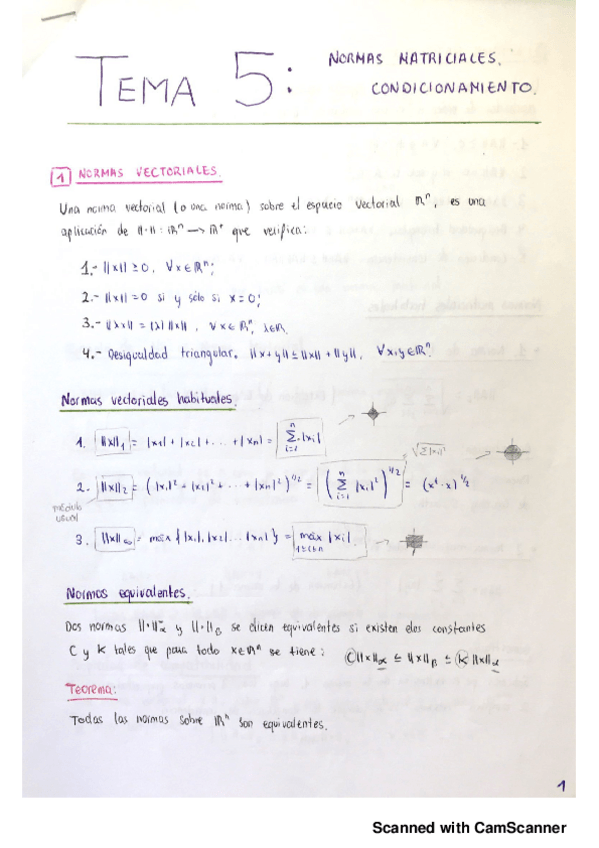 TEMA 5: NORMAS MATRICIALES.
CONDICIONAMIENTO.
1 NORMAS VECTORIALES.
Una norma vectorial (o una norma) sobre el espacio vectorial ℝⁿ, es una
aplicación de ||·|| : ℝⁿ → ℝ⁺ que verifica:
1.- ||x|| ≥ 0, ∀x∈ℝⁿ;
2.- ||x|| = 0 si y sólo si x = 0;
3.- ||λx|| = |λ| ||x||, ∀x∈ℝⁿ, λ∈ℝ.
4.- Desigualdad triangular. ||x+y|| ≤ ||x|| + ||y||, ∀x,y∈ℝⁿ.
Normas vectoriales habituales.
1. ||x||₁ = |x₁| + |x₂| + ... + |xₙ| = ∑ᵢ₌₁ⁿ |xᵢ|
√∑|xᵢ|²
2. ||x||₂ = (|x₁|² + |x₂|² + ... + |xₙ|²)^1/2 = (∑ᵢ₌₁ⁿ |xᵢ|²)^1/2 = (xᵗ·x)^1/2
módulo
usual
3. ||x||∞ = máx {|x₁|, |x₂|, ... |xₙ|} = máx |xᵢ|
1≤i≤n
Normas equivalentes.
Dos normas ||·||α y ||·||β se dicen equivalentes si existen dos constantes
C y K tales que para todo x∈ℝⁿ se tiene: C||x||α ≤ ||x||β ≤ K||x||α
Teorema:
Todas las normas sobre ℝⁿ son equivalentes.
1
Scanned with CamScanner